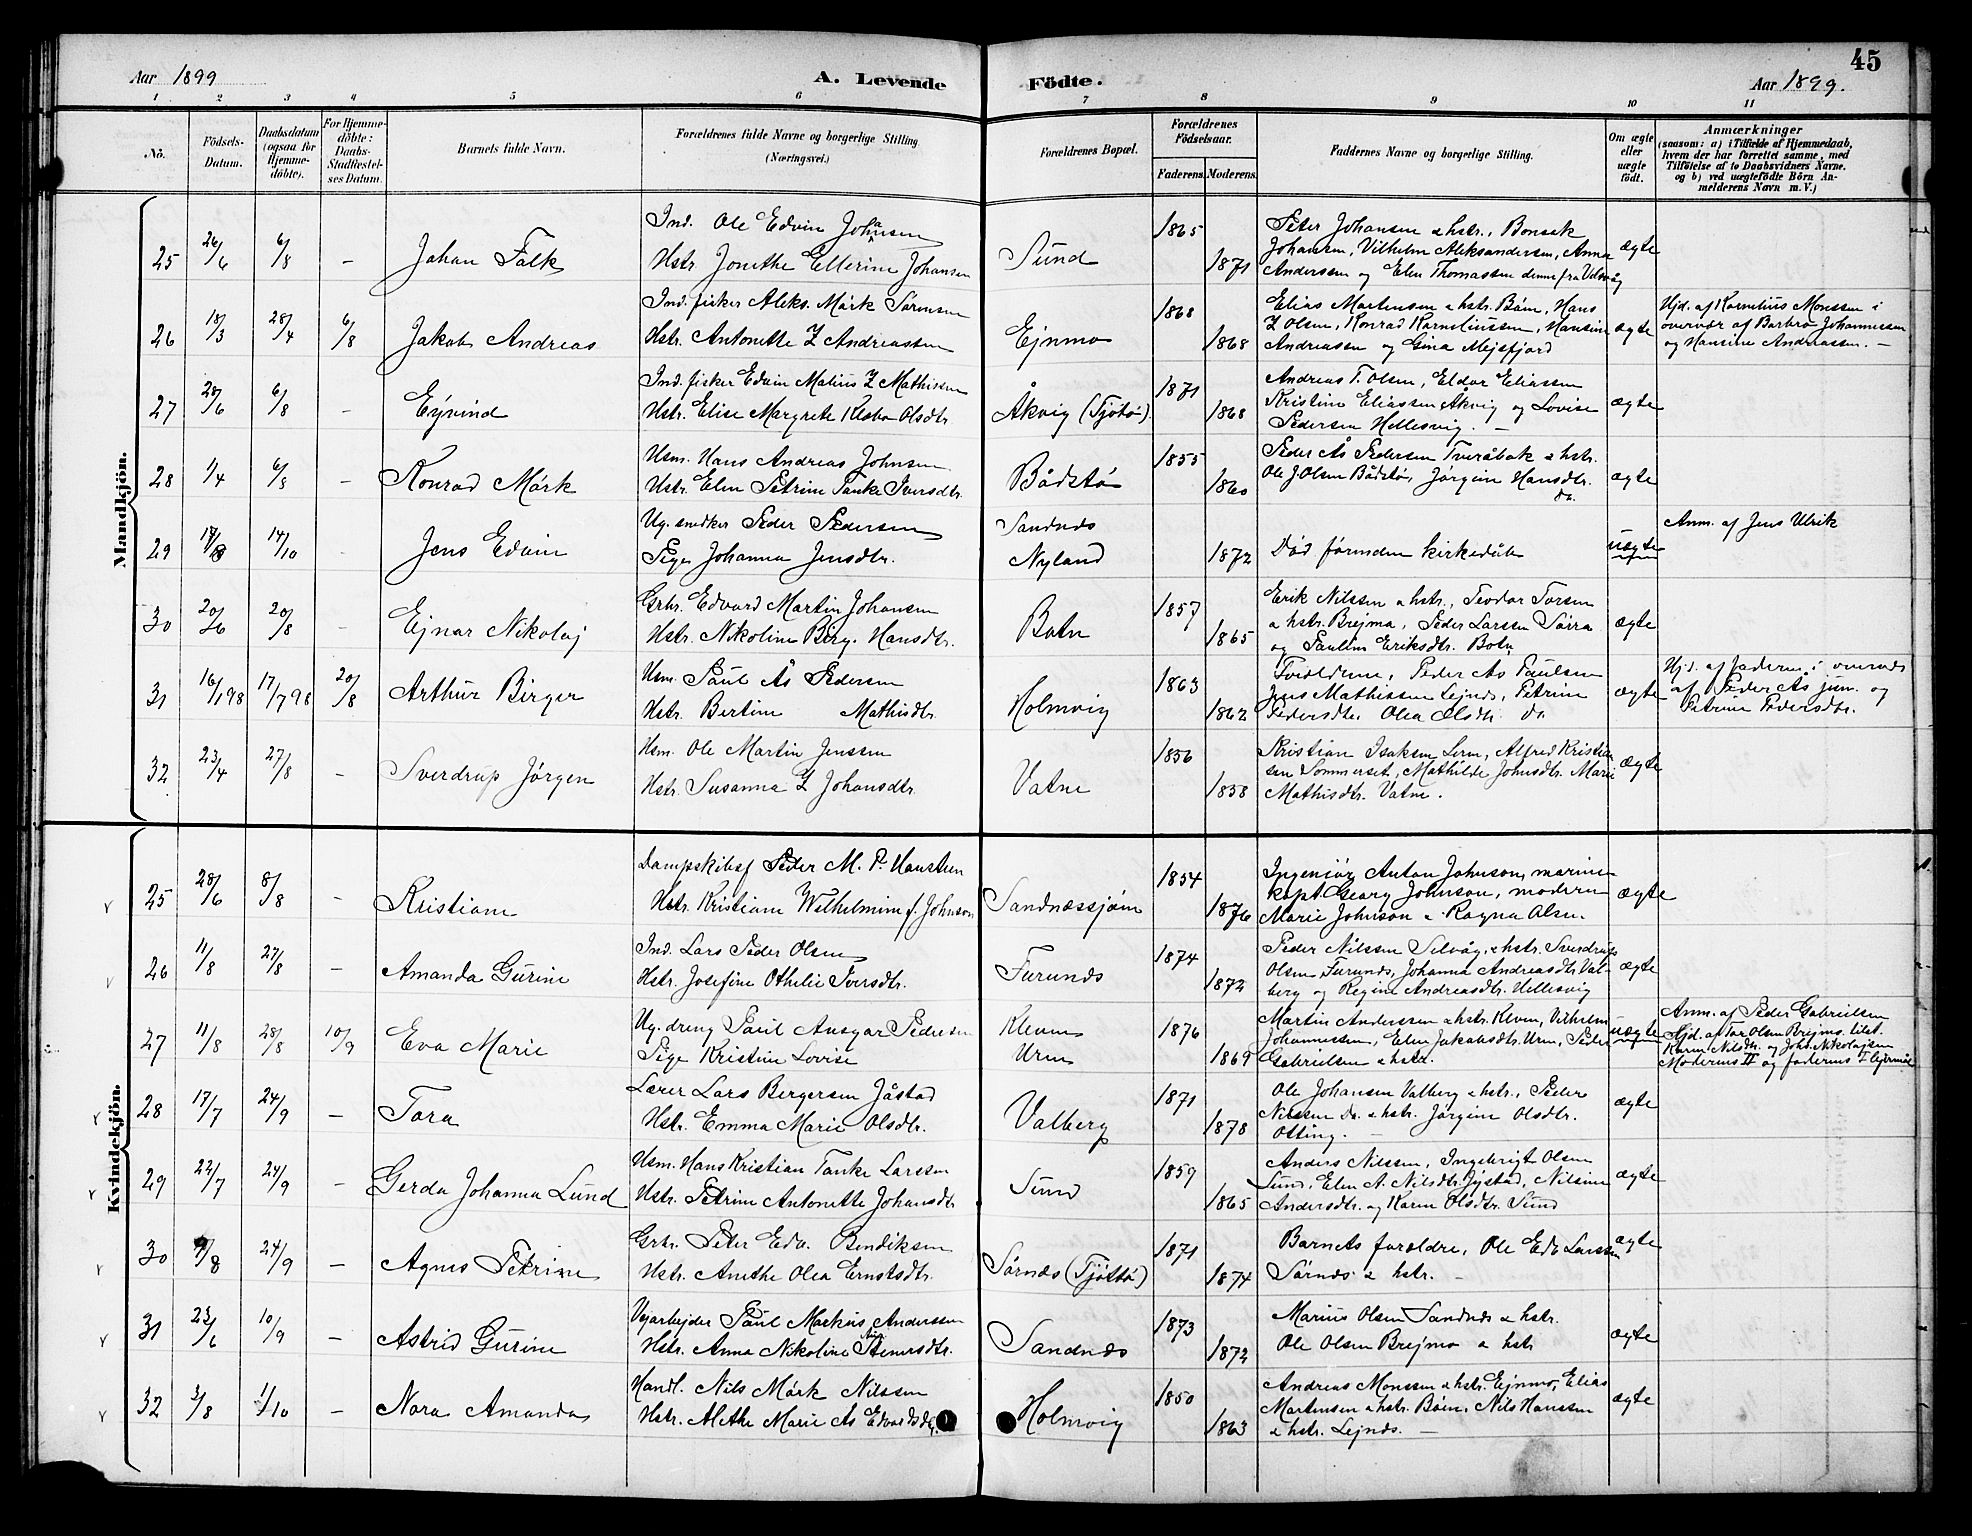 45
Aar 1899
A. Levende Födte.
Aar 1899.
1 2 3 4 5 6 7 8 9 10 11
No.
Födsels-Datum.
Daabsdatum (ogsaa for Hjemme-döbte).
For Hjemme-döbte: Daabs-Stadfæstel-ses Datum.
Barnets fulde Navn.
Forældrenes fulde Navne og borgerlige Stilling (Næringsvei.)
Forældrenes Bopæl.
Forældrenes Födselsaar.
Faderens. Moderens.
Faddernes Navne og borgerlige Stilling.
Om ægte eller uægte födt.
Anmærkninger
(saasom: a) i Tilfælde af Hjemmedaab, hvem der har forrettet samme, med Tilföielse af to Daabsvidners Navne. og b) ved uægtefödte Börn Anmelderens Navn m. V.)
Mandkjön.
25 26/6 6/8 – Johan Falk
Ind. Ole Edvin Johansen
Hstr. Jonette Ellerine Johansen
Sund
1865
1871
Peter Johansen & hstr., Bonsak
Johansen, Vilhelm Aleksandersen, Anna
Anderssen og Elen Thomassen denne fra
ægte
26 18/3 28/4 6/8 Jakob Andreas
Ind. fisker Aleks. Mörk Sørensen
Hstr. Antonette Z Andreassen
Ejnmo
1868
1868
Elias Martensen & hstr. Bøen, Hans
Z Olsen, Konrad Korneliussen, Hansine
Andreassen og Gina Mejsfjord
ægte
Hjd. af Kornelius Monssen i
overvær af Barbro Johannessen
og Hansine Andreassen. –
27 28/6 6/8 – Eyvind
Ind. fisker Edvin Matius Z Mathissen
Hstr. Elise Margrete Olsdtr.
Åkvig (Tjøtø).
1871
1868
Andreas T. Olsen, Eldor Eliassen
Kristine Eliassen Åkvig og Lovise
Pedersen Hellesvig. –
ægte
28 1/4 6/8 – Konrad Mörk
Hsm. Hans Andreas Johnsen
Hstr. Elen Petrine Tanke Iversdtr.
Bådstø
1855
1860
Peder Ås Pedersen Tveråbak & hstr.
Ole J Olsen Bådstø, Jørgine Hansdtr.
do.
ægte
29 17/8 14/10 – Jens Edvin
Ug. snedker Peder Pedersen
Pige Johanna Jensdtr.
Sandnes
Nyland
1872
Død førinden kirkedåb
uægte
Anm. af Jens Ulrik
30 20/6 20/8 – Ejnar Nikolaj
Grbr. Edvard Martin Johansen
Hstr. Nikoline Berg. Hansdtr.
Botn
1857
1865
Erik Nilssen & hstr., Teodor Torsen
& hstr. Brejmo, Peder Larssen Sørra
og Pauline Eriksdtr. Botn
ægte
31 16/1 98 17/7 98 20/8 Arthur Birger
Hsm. Paul Ås Pedersen
Hstr. Bertine Mathisdtr.
Holmvig
1863
1862
Forældrene, Peder As Paulsen
Jens Mathissen Lejnes, Petrine
Pedersdtr. Olea Olsdtr. do
ægte
Hjd. af faderen i overvær
af Peder Ås jun. og
Petrine Pedersdtr.
32 23/4 27/8 – Sverdrup Jørgen
Hsm. Ole Martin Jenssen
Hstr. Susanna Z Johansdtr.
Vatne
1856
1858
Kristian Isaksen Lern, Alfred Kristian
sen Sommerset, Mathilde Johnsdtr. Marie
Mathisdtr. Vatne.
ægte
Kvindekjön.
25 28/6 8/8 – Kristiane
Dampskibsf Peder M. P. Hansteen
Hstr. Kristiane Wilhelmine f. Johnson
Sandnæssjøen
1854
1876
Ingeniør Anton Johnson, marine
kapt. Georg Johnson, moderen
Marie Johnson & Ragna Olsen
ægte
26 11/8 27/8 – Amanda Gurine
Ind. Lars Peder Olsen
Hstr. Josefine Othelie Iversdtr.
Furunes
1874
1872
Peder Nilssen Selvåg, & hstr. Sverdrup
Olsen Furunes, Johanna Andreasdtr. Val-
berg og Regine Andreasdtr. Hellesvig
ægte
27 11/8 28/8 10/9 Eva Marie
Ug. dreng Paul Ansgar Pedersen
Pige Kristine Lovise
Kleven
Uren
1876
1869
Martin Anderssen & hstr. Kleven, Vilhelm
Johannessen, Elen Jakobsdtr. Uren, Peder
Gabrielsen & hstr.
uægte
Anm. af Peder Gabrielsen
Hjd. af Tor Olsen Brejmo. tilst.
Karen Nilsdtr. og Joh. Nikolajsen
Moderens II og faderens I lejermål
28 17/7 24/9 – Tora
Lærer Lars Bergersen Jåstad
Hstr. Emma Marie Olsdtr.
Valberg
1871
1878
Ole Johansen Valberg & hstr., Peder
Nilssen Do. & hstr. Jørgine Olsdtr.
Otting. –
ægte
29 22/7 24/9 – Gerda Johanna Lund
Hsm. Hans Kristian Tanke Larssen
Hstr. Petrine Antonette Johansdtr
Sund
1859
1865
Anders Nilssen, Ingebrigt Olsen
Sund, Elen A. Nilsdtr. Jystad, Nilsine
Andersdtr. og Karen Olsdtr. Sund
ægte
30 9/8 24/9 – Agnes Petrine
Grbr. Peter Edv. Bendiksen
Hstr. Anethe Olea Ernstsdtr.
Sørnes (Tjøttø)
1871
1874
Barnets forældre, Ole Edv Larssen
Sørnes & hstr. –
ægte
31 23/6 10/9 – Astrid Gurine
Vejarbejder Paul Markus Anderssen
Hstr. Anna Nikoline Stenersdtr.
Sandnes
1873
1872
Marius Olsen Sandnes & hstr.
Ole Olsen Brejmo & hstr
ægte
32 3/8 1/10 – Nora Amanda
Handl. Nils Mörk Nilssen
Hstr. Alethe Marie As Edvardsdtr.
Holmvig
1850
1863
Andreas Monssen & hstr. Ejnmo, Elias
Martensen & hstr. Bøen, Nils Hanssen
& hstr. Lejnes. –
ægte